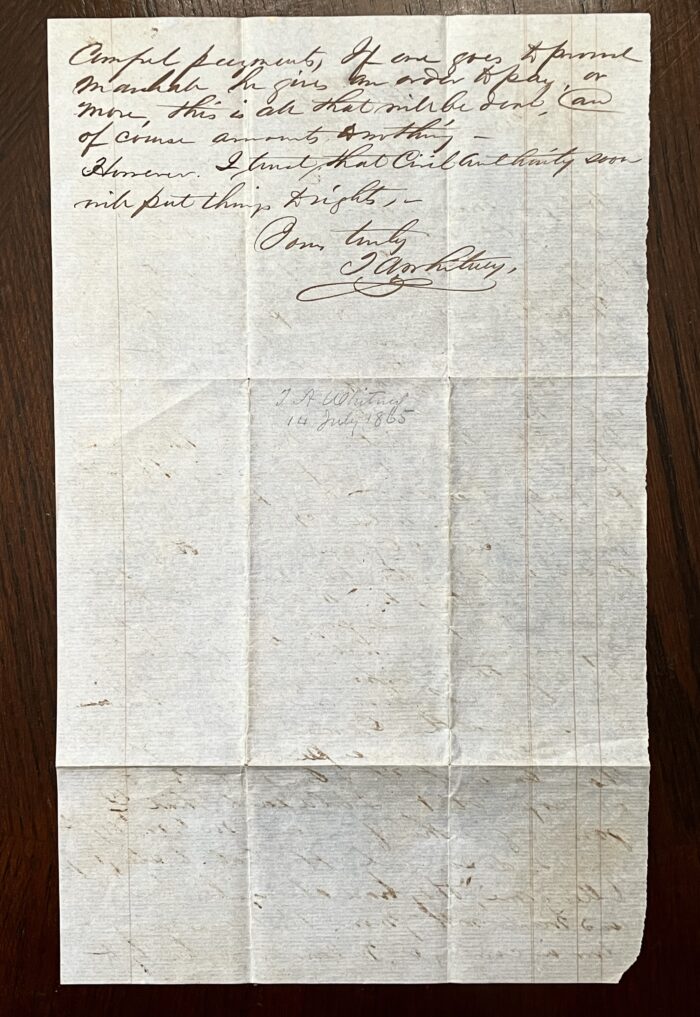 Compel payments, If one goes to provost
Marshall he gives an order to pay, or
more, this is all that will be done, (and
of course amounts to nothing –
However. I trust that Civil authority soon
will put things to rights, –
Yours truly
T A Whitney,
T A Whitney
14 July 1865